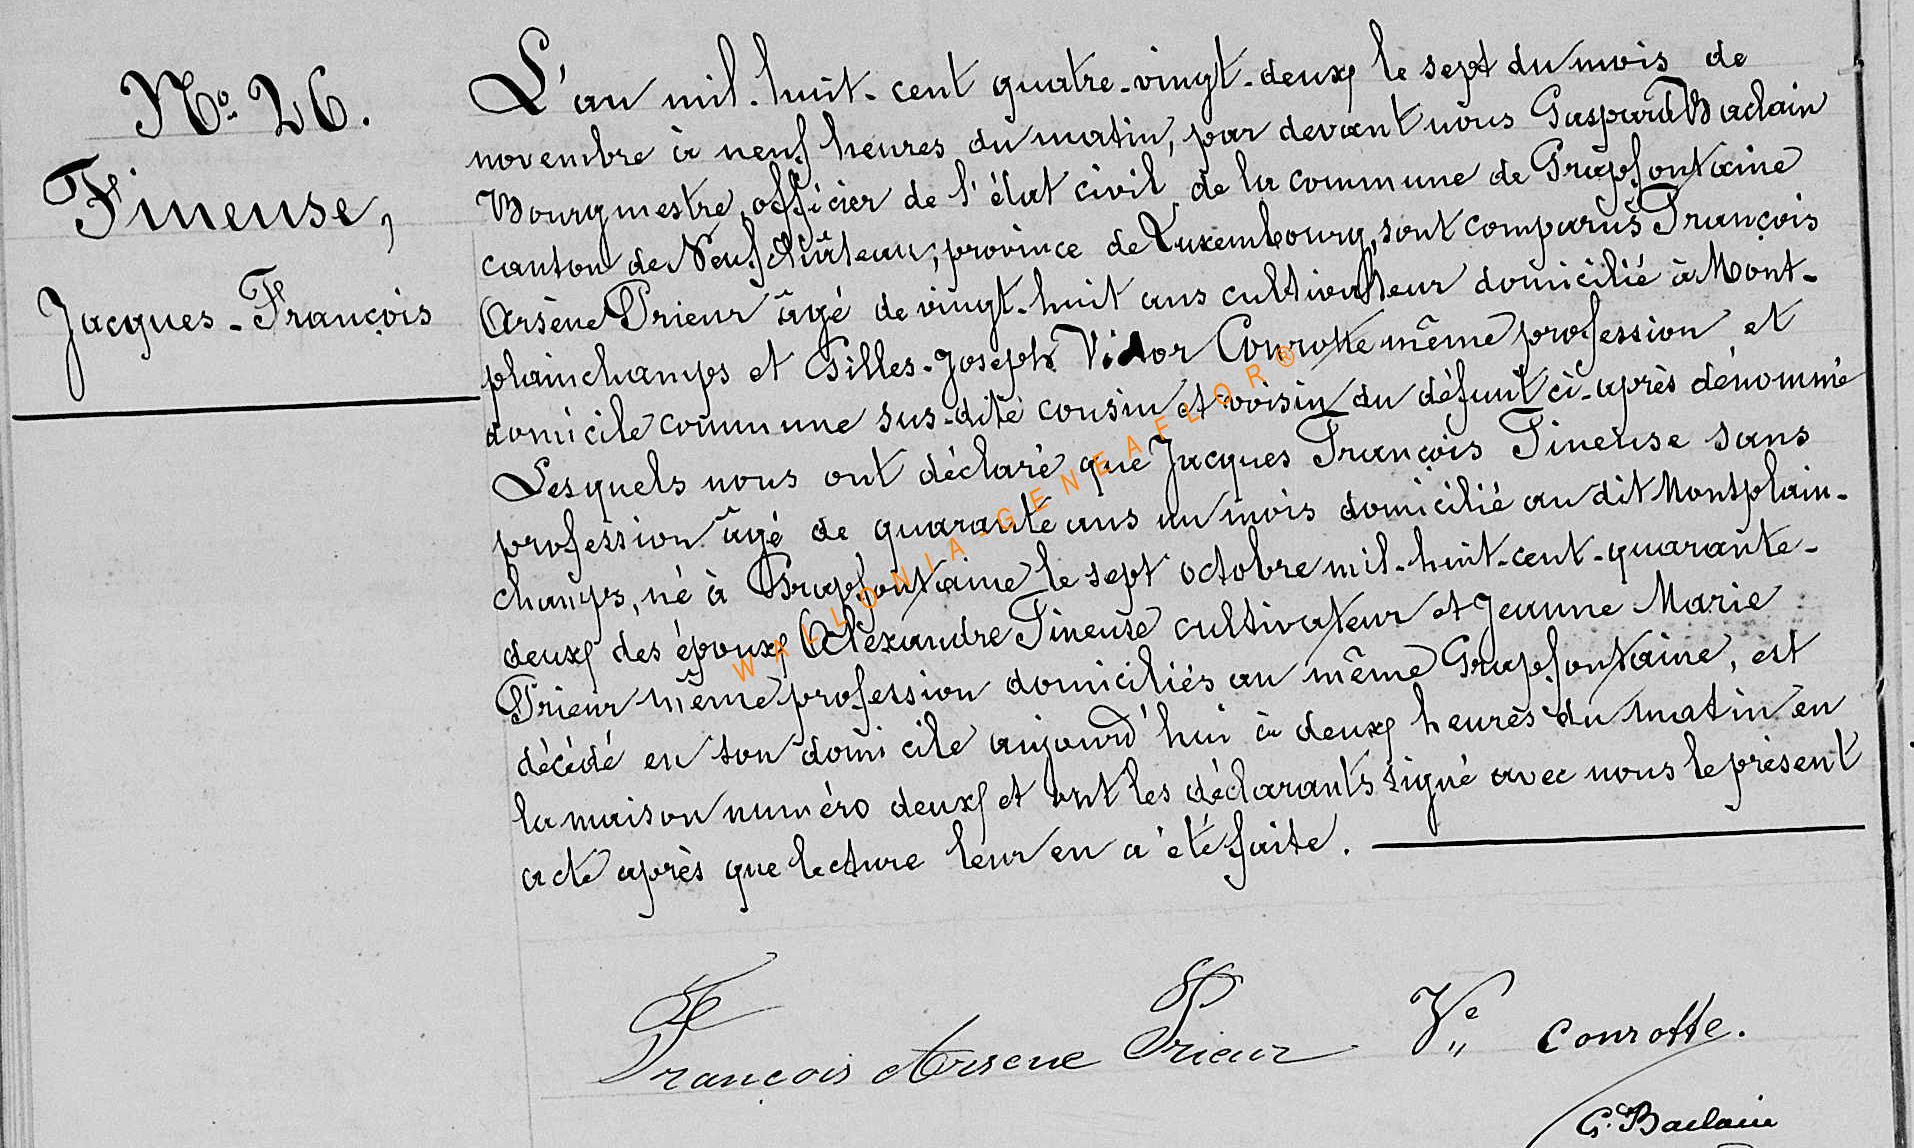 Nº 26.
Fineuse,
Jacques-François
L'an mil-huit-cent quatre-vingt-deux le sept du mois de
novembre à neuf heures du matin, par devant nous Gaspard Baclain
Bourgmestre, officier de l'état civil de la commune de Grapfontaine
canton de Neufchâteau, province de Luxembourg, sont comparus François
Arsène Prieur âgé de vingt-huit ans cultivateur domicilié à Mont-
plainchamps et Gilles-Joseph Victor Conrotte même profession et
domicile commune sus-dite cousin et voisin du défunt ci-après dénommé
Lesquels nous ont déclaré que Jacques François Fineuse sans
profession âgé de quarante ans un mois domicilié au dit Montplain-
champs, né à Grapfontaine le sept octobre mil-huit-cent-quarante-
deux des époux Alexandre Fineuse cultivateur et Jeanne Marie
Prieur même profession domiciliés au même Grapfontaine, est
décédé en son domicile aujourd'hui à deux heures du matin en
la maison numéro deux et ont les déclarants signé avec nous le présent
acte après que lecture leur en a été faite.
WALLONIA-GENEAFLOR®
François Arsene Prieur Ve Conrotte.
G. Baclain